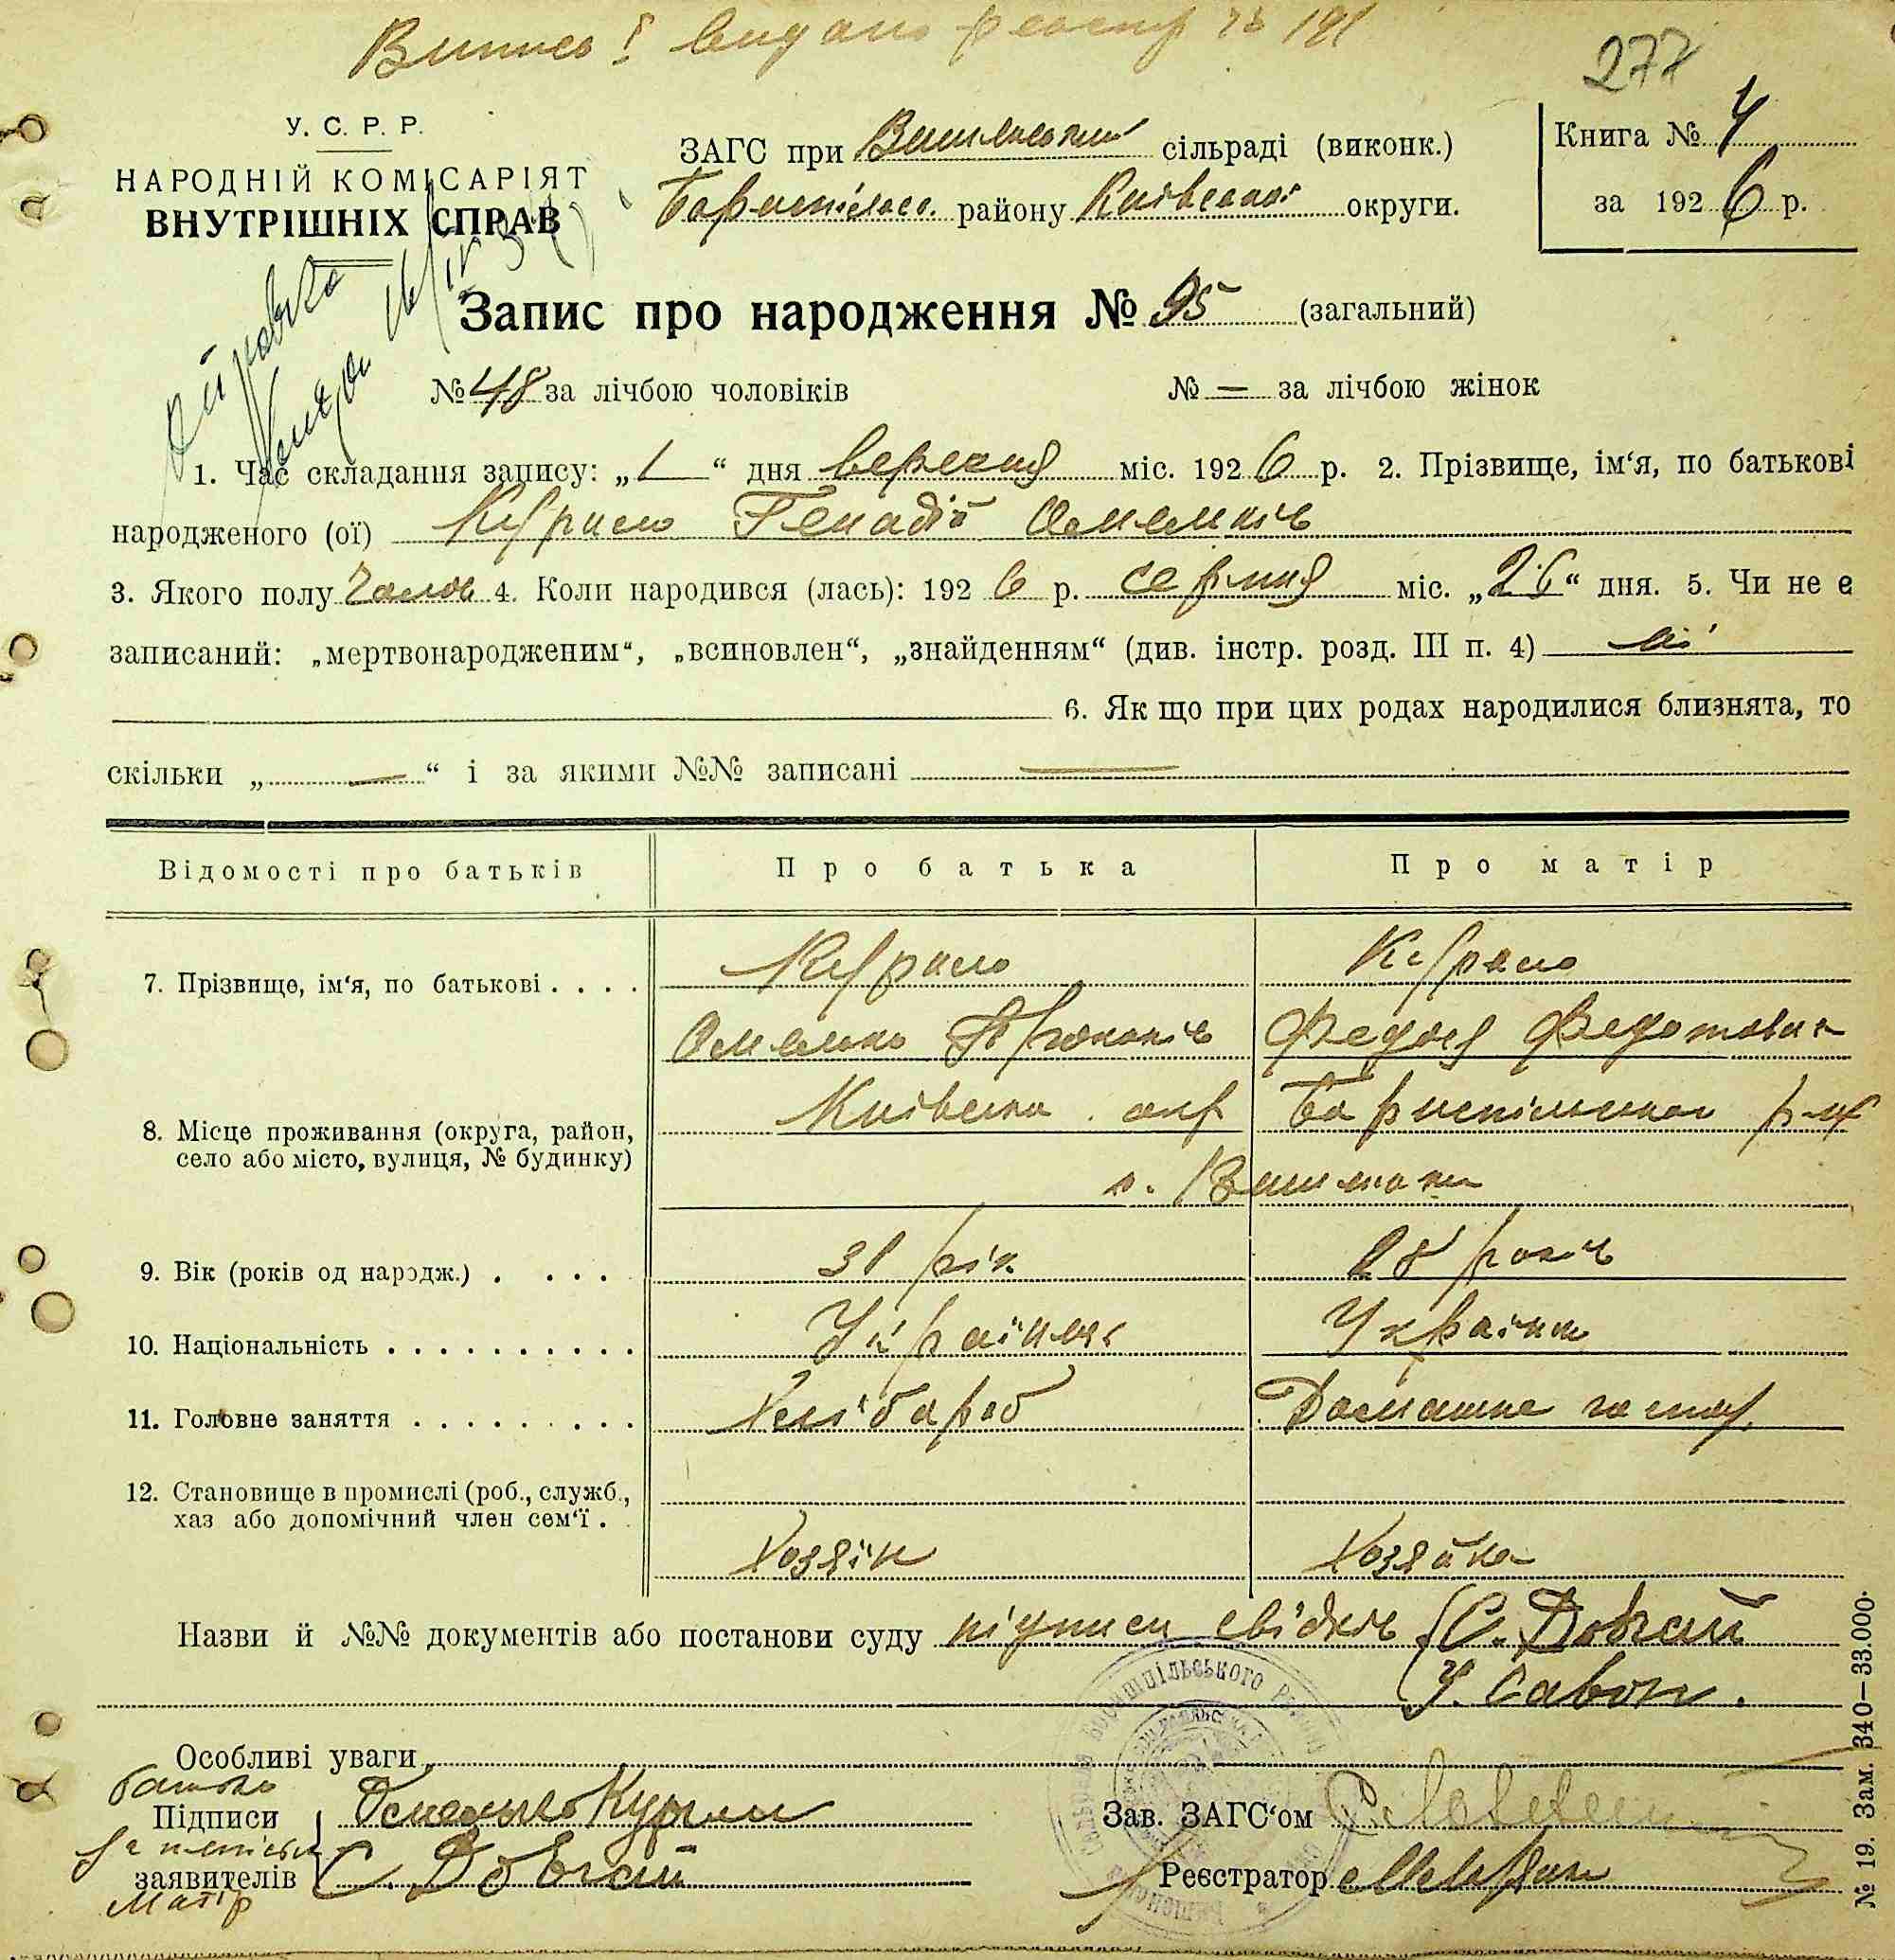 277
У. С. Р. Р.
НАРОДНІЙ КОМІСАРІЯТ
ВНУТРІШНІХ СПРАВ
ЗАГС при сільраді (виконк.)
району Київської округи.
Книга № 4
за 1926 р.
Запис про народження № 95 (загальний)
№ 48 за лічбою чоловіків № — за лічбою жінок
1. Час складання запису: „1“ дня вересня міс. 1926 р. 2. Прізвище, ім'я, по батькові
народженого (ої) Курило Генадій
3. Якого полу 4. Коли народився (лась): 1926 р. серпня міс. „26“ дня. 5. Чи не є
записаний: „мертвонародженим“, „всиновлен“, „знайденням“ (див. інстр. розд. III п. 4) ні
6. Як що при цих родах народилися близнята, то
скільки „—“ і за якими №№ записані —
Відомості про батьків Про батька Про матір
7. Прізвище, ім'я, по батькові . . . . Курило Курило
Федотовна
8. Місце проживання (округа, район, Київська окр Бориспільського р-ну
село або місто, вулиця, № будинку)
9. Вік (років од народж.) . . . . 31 рік 28 років
10. Національність . . . . . . . . . . Українець Українка
11. Головне заняття . . . . . . . . . Хлібороб Домашнє госпор.
12. Становище в промислі (роб., служб.,
хаз або допомічний член сем'ї . .
Хозяїн Хозяйка
Назви й №№ документів або постанови суду підписи свідків С. Довгий
У. Савон.
Особливі уваги
батько
Підписи Курило
заявителів С. Довгий
матір
Зав. ЗАГС'ом
Реєстратор
№ 19. Зам. 340—33.000.